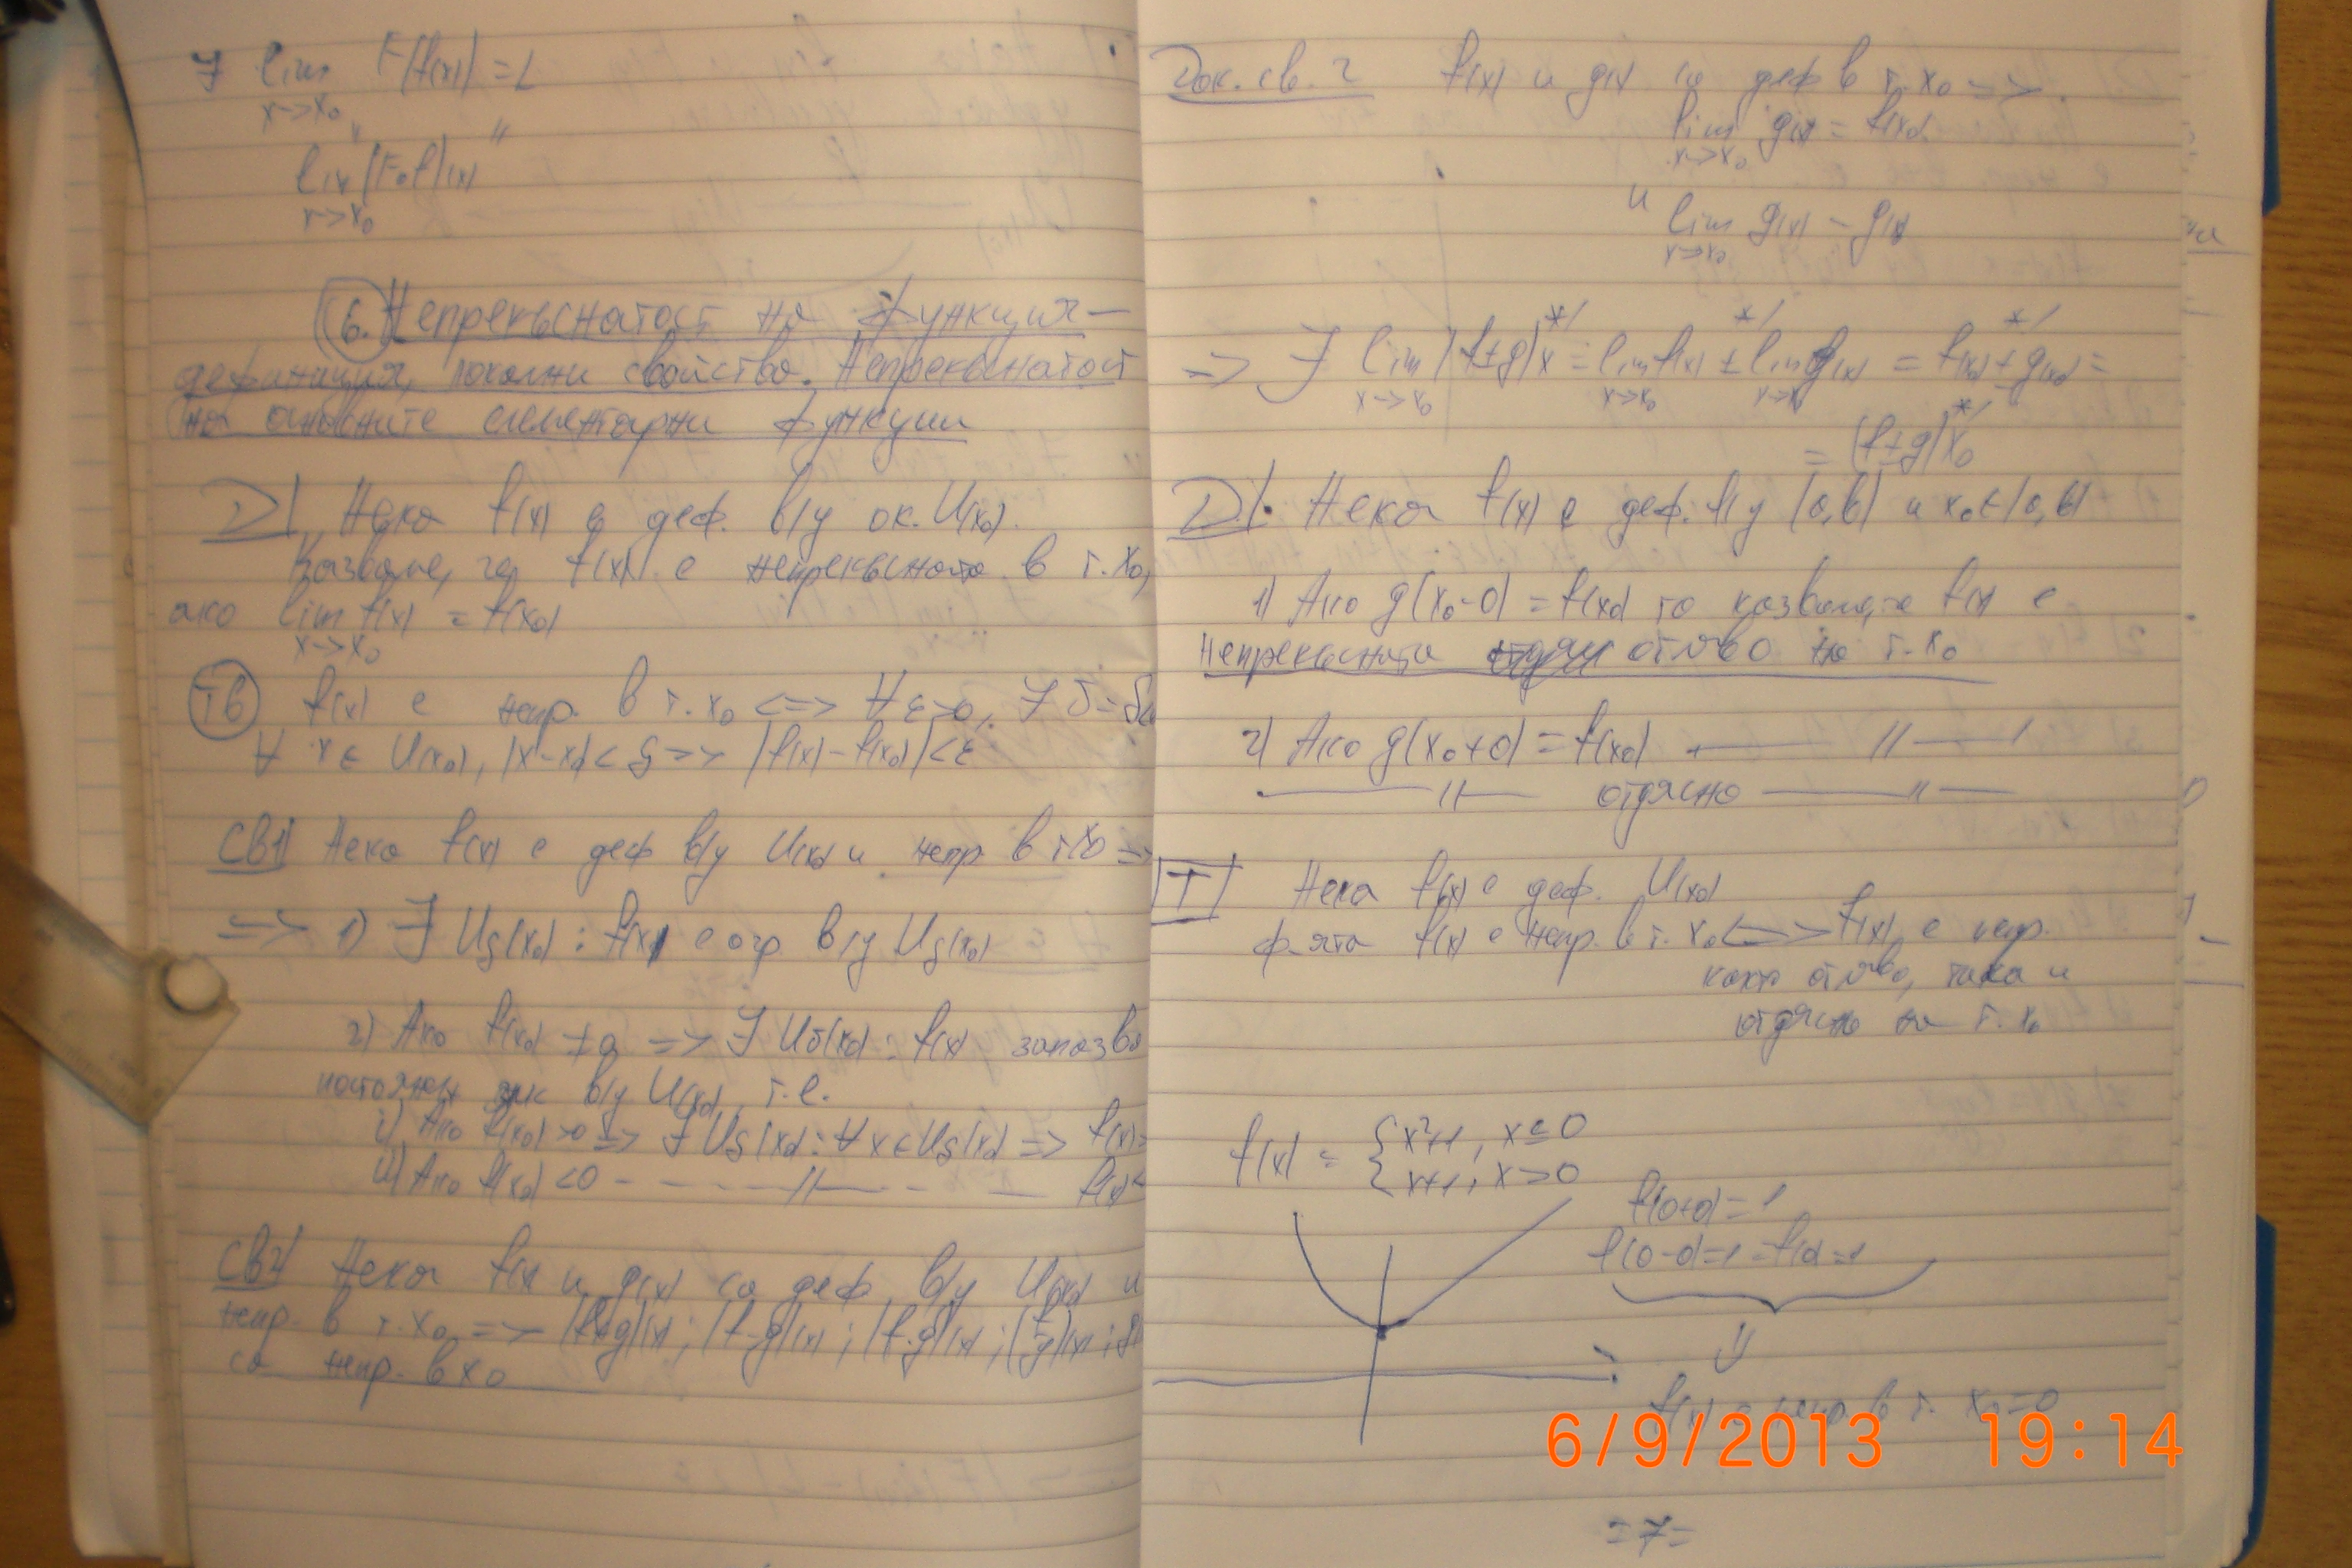 ∃ lim F(f(x)) = L
x→x₀
"
"
lim (F∘f)(x)
x→x₀
6. Непрекъснатост на функция –
дефиниция, локални свойства. Непрекъснатост
на основните елементарни функции
D/ Нека f(x) е деф. в/у ок. U(x₀).
Казваме, че f(x) е непрекъсната в т. x₀,
ако lim f(x) = f(x₀)
x→x₀
Тв f(x) е непр. в т. x₀ <=> ∀ε>0, ∃ δ=
∀ x ∈ U(x₀), |x-x₀| < δ => |f(x)-f(x₀)| < ε
Св1/ Нека f(x) е деф в/у U(x₀) и непр. в т. x₀ =>
=> 1) ∃ Uδ(x₀) : f(x) е огр. в/у Uδ(x₀)
2) Ако f(x₀) ≠ 0 => ∃ Uδ(x₀) : f(x) запазва
постоянен знак в/у U(x₀), т.е.
i) Ако f(x₀)>0 => ∃ Uδ(x₀) : ∀ x ∈ Uδ(x₀) => f(x)>
ii) Ако f(x₀) <0 - - - -//- - - — f(x)<
Св2/ Нека f(x) и g(x) са деф. в/у U(x₀) и
непр. в т. x₀ => (f+g)(x); (f-g)(x); (f.g)(x); (f/g)(x);
са непр. в x₀
Док. св. 2 f(x) и g(x) са деф в т. x₀ =>
lim g(x) = f(x₀)
x→x₀
и lim g(x) – g(x)
x→x₀
*/ */ */
=> ∃ lim (f±g)x = lim f(x) ± lim g(x) = f(x₀) ± g(x₀) =
x→x₀ x→x₀ x→x₀
*/
= (f±g)x₀
D/. Нека f(x) е деф. в/у (a,b) и x₀ ∈ (a,b)
1) Ако g(x₀-0) = f(x₀) то казваме, че f(x) е
непрекъсната отляво на т. x₀
2) Ако g(x₀+0) = f(x₀) ——— // ———
——— // —— отдясно ——— // ——
T Нека f(x) е деф. U(x₀)
ф-ята f(x) е непр. в т. x₀ <=> f(x) е непр.
както отляво, така и
отдясно на т. x₀
f(x) = { x²+1, x ≤ 0
{ x+1, x > 0
f(0+0) = 1
f(0-0)=1=f(0)=1
f(x) е непр. в т. x₀=0
6/9/2013 19:14
=7=